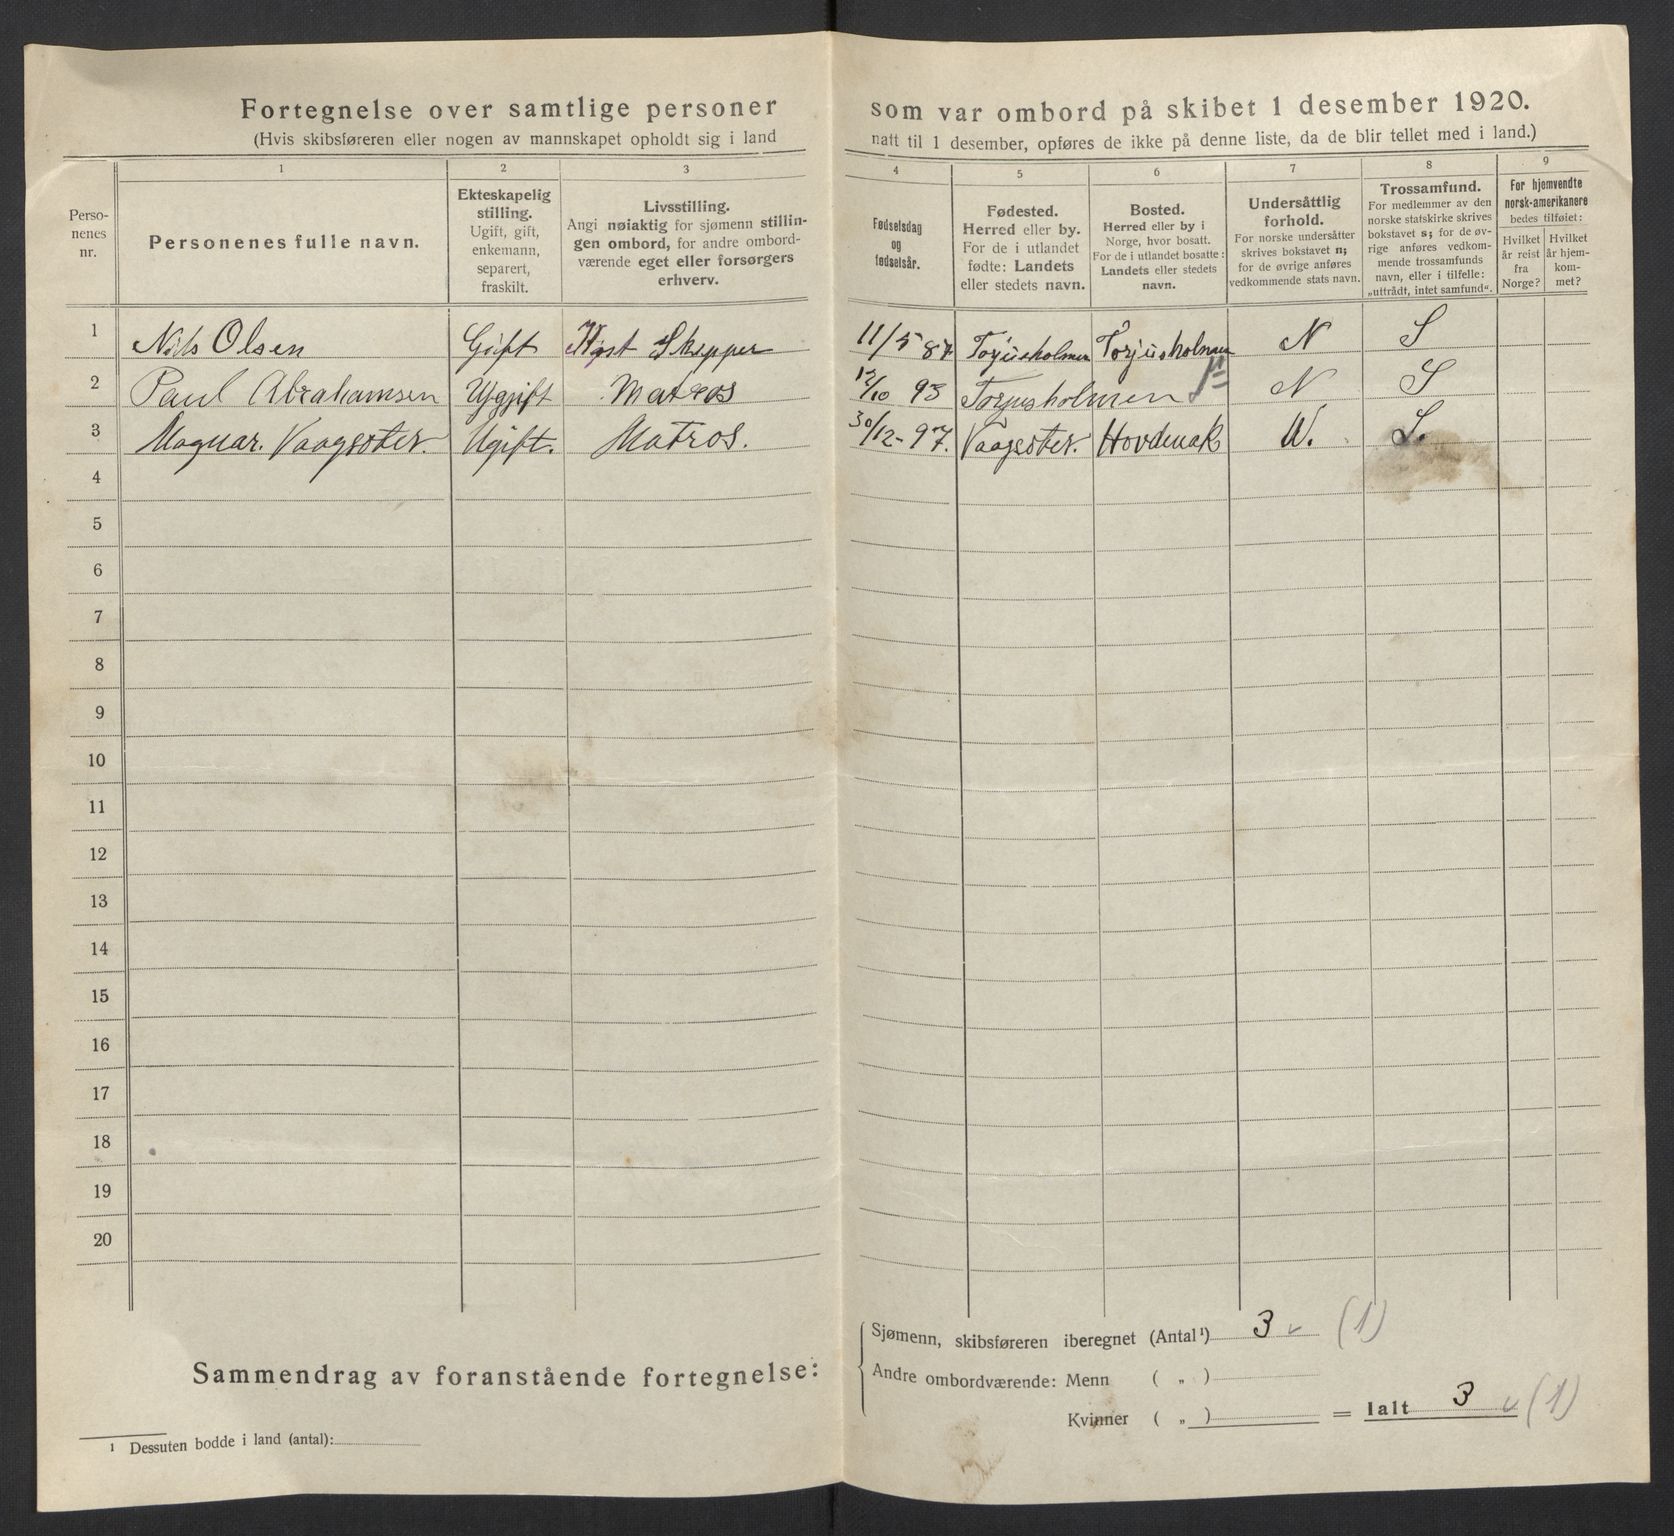 Fortegnelse over samtlige personer som var ombord på skibet 1 desember 1920.
(Hvis skibsføreren eller nogen av mannskapet opholdt sig i land natt til 1 desember, opføres de ikke på denne liste, da de blir tellet med i land.)
1 2 3 4 5 6 7 8 9
Perso-
nenes
nr.
Personenes fulle navn.
Ekteskapelig
stilling.
Ugift, gift,
enkemann,
separert,
fraskilt.
Livsstilling.
Angi nøiaktig for sjømenn stillin-
gen ombord, for andre ombord-
værende eget eller forsørgers
erhverv.
Fødselsdag
og
fødselsår.
Fødested.
Herred eller by.
For de i utlandet
fødte: Landets
eller stedets navn.
Bosted.
Herred eller by i
Norge, hvor bosatt.
For de i utlandet bosatte:
Landets eller stedets
navn.
Undersåttlig
forhold.
For norske undersåtter
skrives bokstavet n;
for de øvrige anføres
vedkommende stats navn.
Trossamfund.
For medlemmer av den
norske statskirke skrives
bokstavet s; for de øv-
rige anføres vedkom-
mende trossamfunds
navn, eller i tilfelle:
„uttrådt, intet samfund“.
For hjemvendte
norsk-amerikanere
bedes tilføiet:
Hvilket
år reist
fra
Norge?
Hvilket
år hjem-
kom-
met?
1 Nils Olsen Gift Kyst Skepper 11/5 87 Torjusholmen Torjusholmen N S
2 Paul Abrahamsen Ugjift Matros 12/10 93 Torjusholmen N S
3 Magnar. Vaagsøter. Ugift. Matros. 30/12-97. Vaagsøter. Hovdenak N. S.
4
5
6
7
8
9
10
11
12
13
14
15
16
17
18
19
20
Sammendrag av foranstående fortegnelse:
Sjømenn, skibsføreren iberegnet (Antal¹) 3 (1)
Andre ombordværende: Menn ( „ )
Kvinner ( „ ) = Ialt 3 (1)
¹ Dessuten bodde i land (antal):